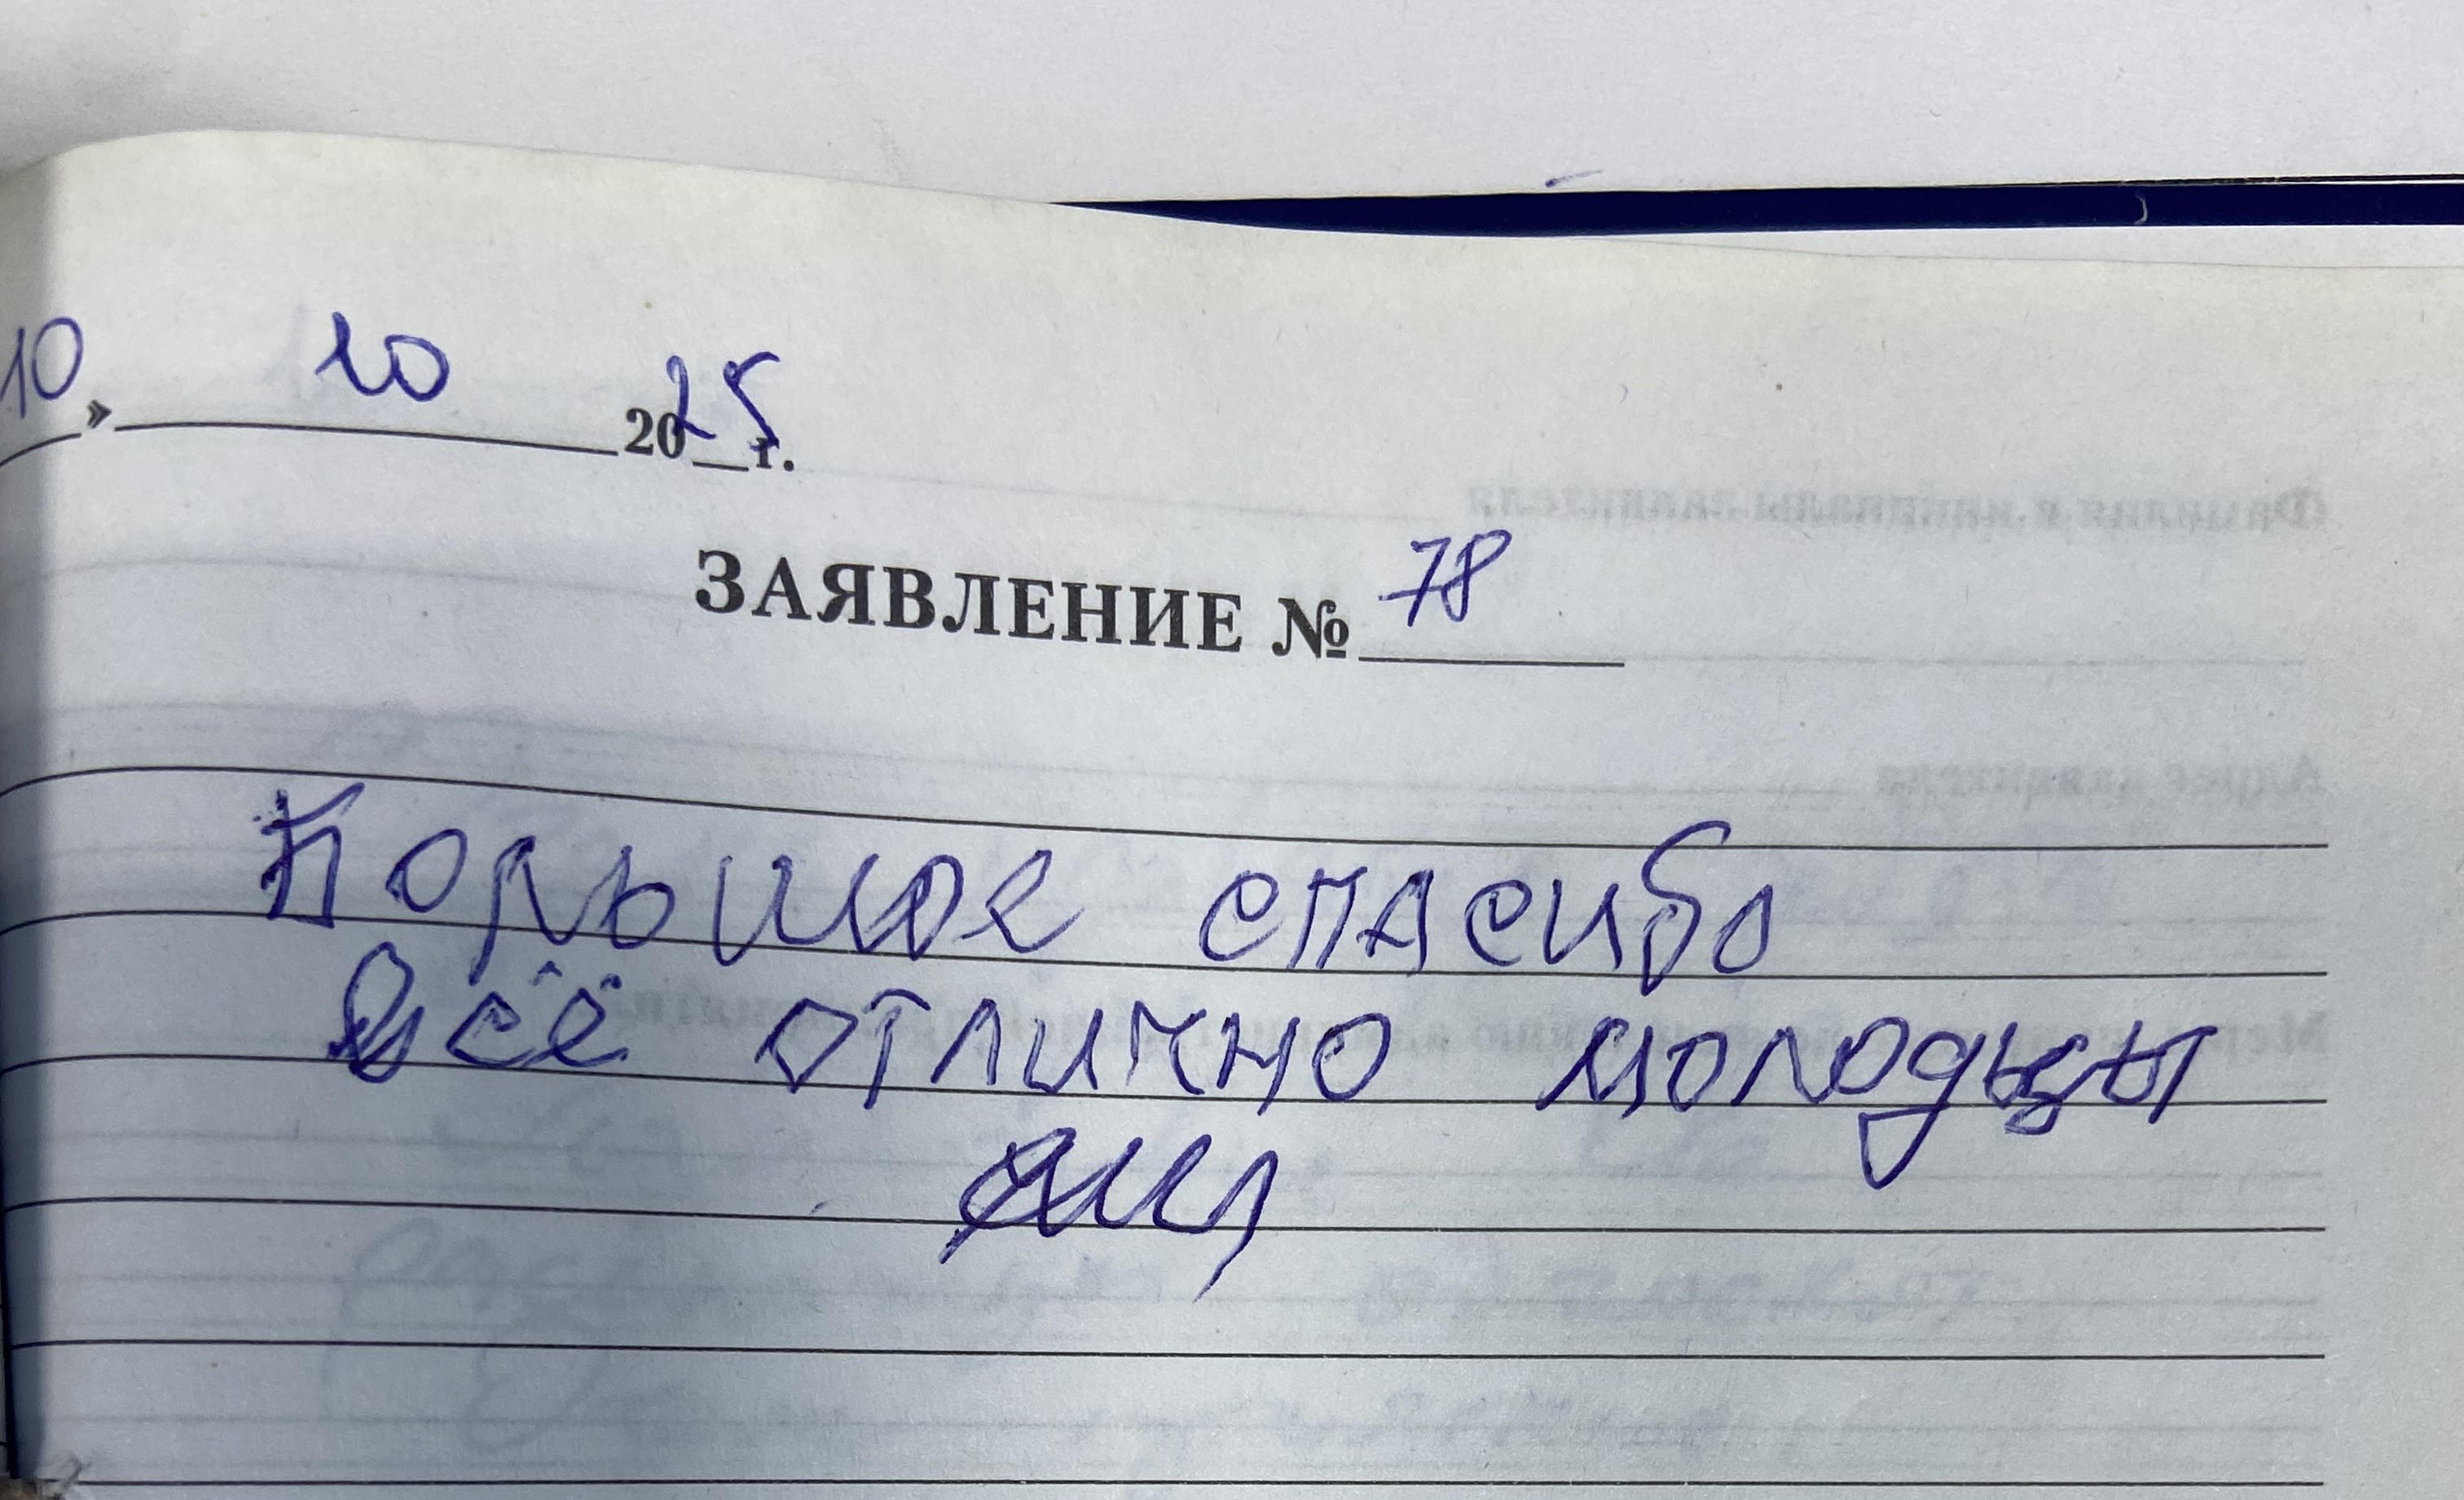 10 » 10 2025 г.
ЗАЯВЛЕНИЕ № 78
Большое спасибо
Всё отлично молодцы